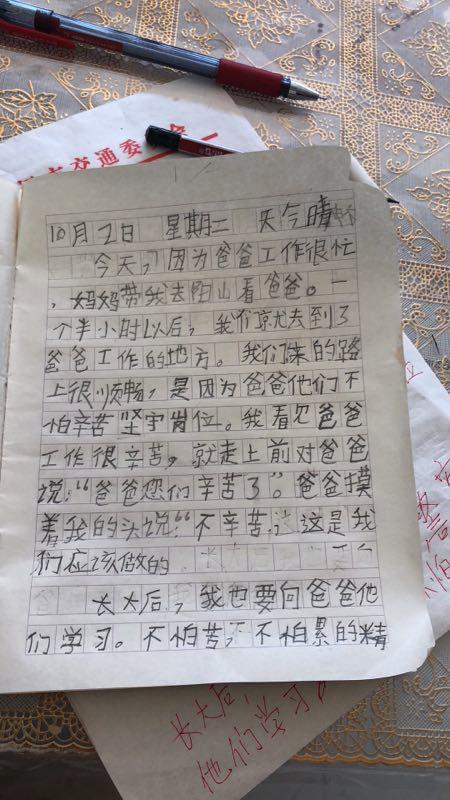 交通委
10月2日 星期二 天今晴
今天，因为爸爸工作很忙
，妈妈带我去阳山看爸爸。一
个半小时以后，我们就去到了
爸爸工作的地方。我们来的路
上很顺畅，是因为爸爸他们不
怕辛苦坚守岗位。我看见爸爸
工作很辛苦，就走上前对爸爸
说：“爸爸您们辛苦了”。爸爸摸
着我的头说：“不辛苦，这是我
们应该做的。
长大后，我也要向爸爸他
们学习。不怕苦，不怕累的精
长大后
他们学习